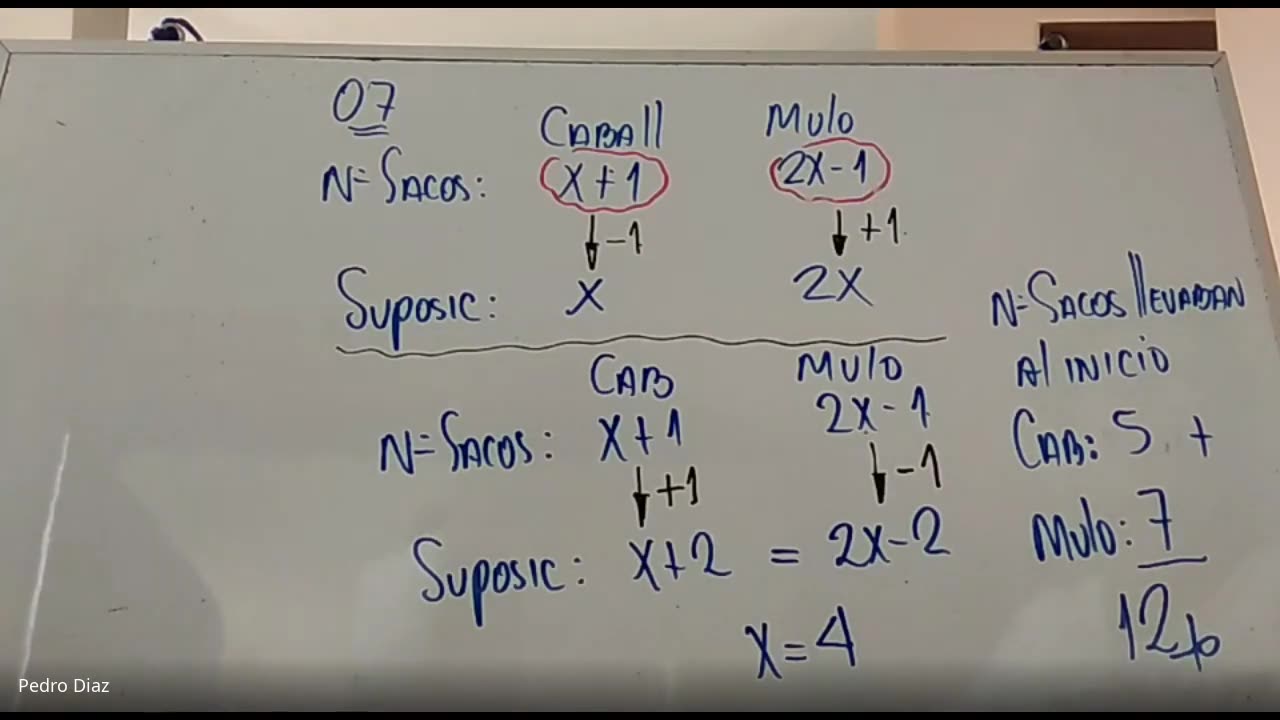 07
CABAll Mulo
N= SACOS: x+1 2x-1
-1 +1
Suposic: x 2x
CAB Mulo
N= SACOS: x+1 2x-1
+1 -1
Suposic: x+2 = 2x-2
x=4
N= SACOS llEVABAN
Al INICIO
CAB: 5 +
Mulo: 7
12
Pedro Diaz